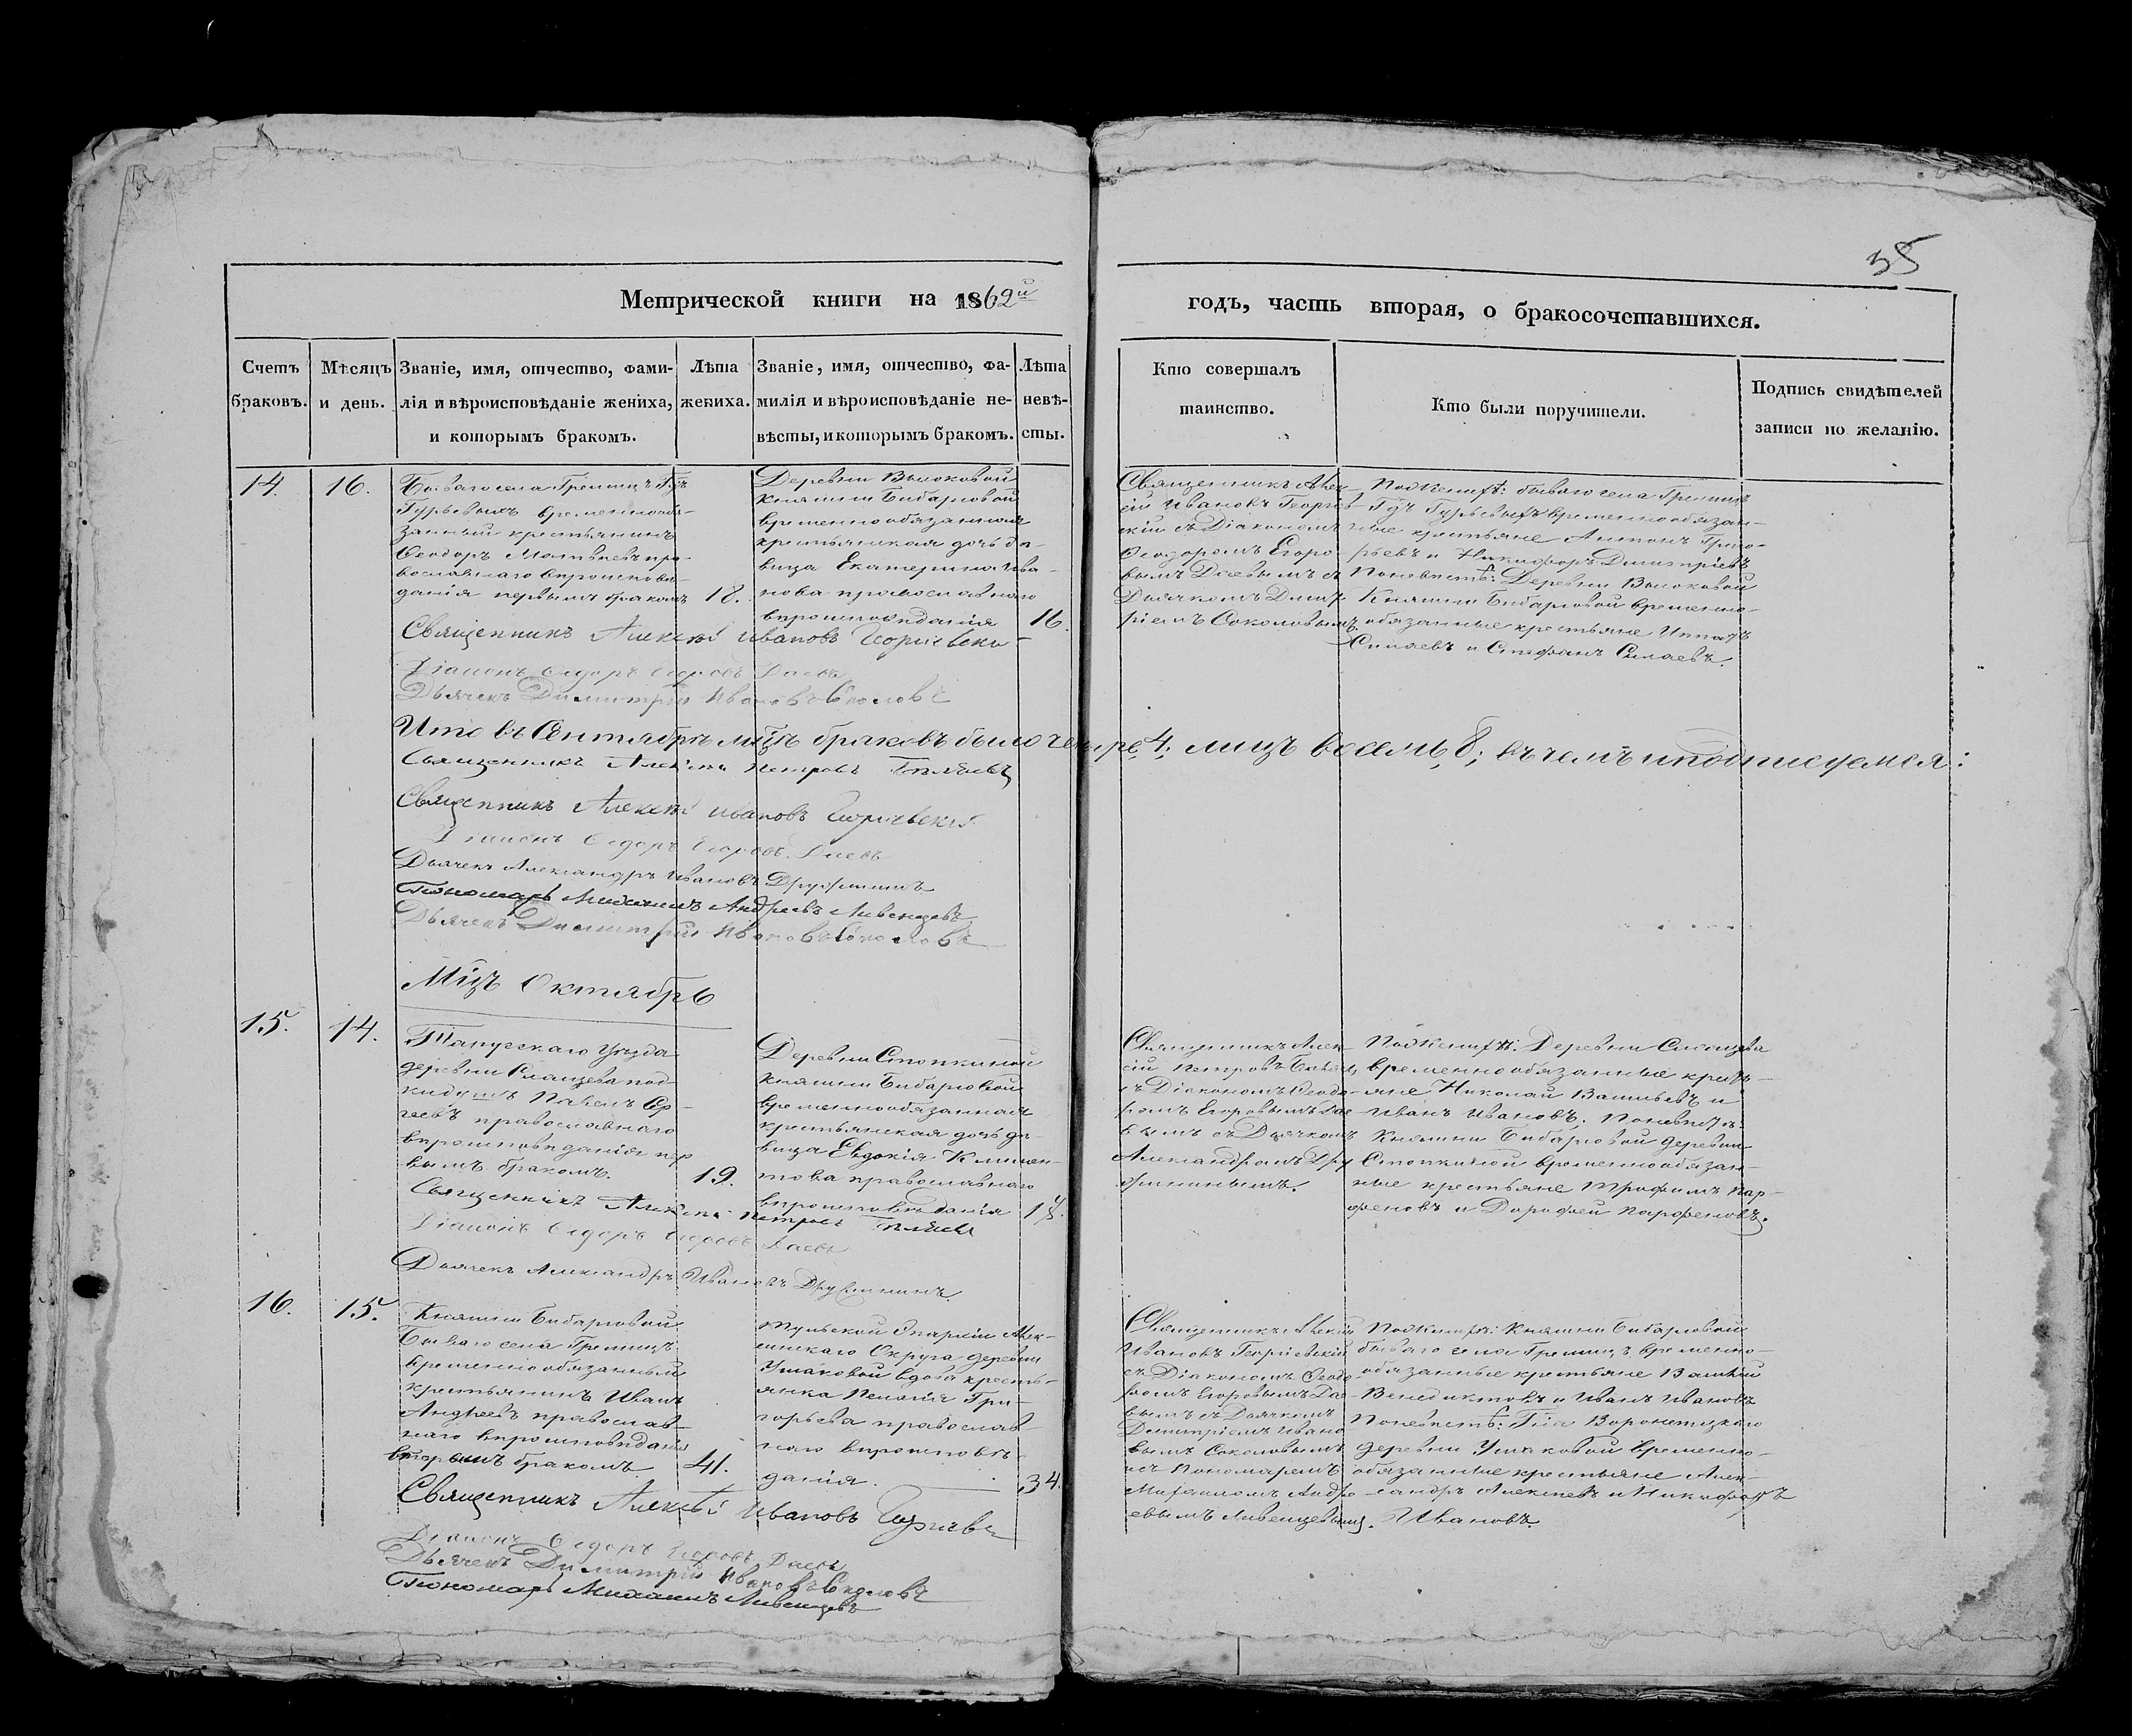 35
Метрической книги на 1862й годъ, часть вторая, о бракосочетавшихся.
Счетъ браковъ.
Мѣсяцъ и день.
Званіе, имя, отчество, фами-
лія и вѣроисповѣданіе жениха,
и которымъ бракомъ.
Лѣта
жениха.
Званіе, имя, отчество, фа-
милія и вѣроисповѣданіе не-
вѣсты, и которымъ бракомъ.
Лѣта
невѣ-
сты.
Кто совершалъ
таинство.
Кто были поручители.
Подпись свидѣтелей
записи по желанію.
14.
16.
Бывшаго села Гремицъ Гдъ
Гурьевыхъ временнообя-
занный крестьянинъ
Ѳеодоръ Матвѣевъ пра-
вославнаго вѣроисповѣ-
данія первымъ бракомъ
18.
Деревни Высоковой
Княгини Бибарсовой
временнообязанная
крестьянская дочь дѣ-
вица Екатерина Ива-
нова православнаго
вѣроисповѣданія
16.
Священникъ Алек-
сій Ивановъ Георгіев-
скій съ Діакономъ
Ѳеодоромъ Егоро-
вымъ Даевымъ съ
Дьячкомъ Димит-
ріемъ Соколовымъ.
По женихѣ: бывшаго села Гремицъ
Гдъ Гурьевыхъ временнообязан-
ные крестьяне Антонъ Григо-
рьевъ и Никифоръ Димитріевъ
По невѣстѣ: Деревни Высоковой
Княгини Бибарсовой временно-
обязанные крестьяне Ипатъ
Силаевъ и Стефанъ Силаевъ.
Священникъ Алексѣй Ивановъ Георгіевскі
Діаконъ Ѳедоръ Егоровъ Даевъ
Дьячекъ Димитрій Ивановъ Соколовъ
Итого въ Сентябрѣ мцѣ браковъ было четыре, 4; лицъ восемь, 8; въ чемъ и подписуемся:
Священникъ Алексѣй Петровъ Бѣляевъ
Священникъ Алексѣй Ивановъ Георгіевскій
Діаконъ Ѳедоръ Егоровъ Даевъ
Дьячекъ Александръ Ивановъ Друфининъ
Пономарь Михаилъ Андреевъ Ливенцевъ
Дьячекъ Димитрій Ивановъ Соколовъ
Мцъ Октябрь
15.
14.
Тарусскаго Уѣзда
деревни
Павелъ Сер-
геевъ православнаго
вѣроисповѣданія пер
вымъ бракомъ.
19.
Деревни Стопкиной
Княгини Бибарсовой
временнообязанная
крестьянская дочь дѣ-
вица Евдокія Климен-
това православнаго
вѣроисповѣданія
18.
Священникъ Алек-
сій Петровъ Бѣляевъ
съ Діакономъ Ѳеодо-
ромъ Егоровымъ Дае-
вымъ съ Дьячкомъ
Александромъ Дру
фининымъ.
По женихѣ: Деревни
временнообязанные кресть-
яне Николай Васильевъ и
Иванъ Ивановъ. По невѣстѣ:
Княгини Бибарсовой деревни
Стопкиной временнообязан-
ные крестьяне Трофимъ Пар-
феновъ и Дорофей Парфеновъ.
Священникъ Алексѣй Петровъ Бѣляевъ
Діаконъ Ѳедоръ Егоровъ Даевъ
Дьячекъ Александръ Ивановъ Друфининъ.
16.
15.
Княгини Бибарсовой
бывшаго села Гремицъ
временнообязанный
крестьянинъ Иванъ
Андреевъ православ-
наго вѣроисповѣданія
вторымъ бракомъ
41.
Тульской Епархіи Алек-
синскаго Округа деревни
Ушаковой вдова кресть-
янка Пелагія Гри-
горьева православ-
наго вѣроисповѣ-
данія.
34.
Священникъ Алексій
Ивановъ Георгіевскій
съ Діакономъ Ѳеодо-
ромъ Егоровымъ Дае-
вымъ съ Дьячкомъ
Димитріемъ Ивано
вымъ Соколовымъ
и съ Пономаремъ
Михаиломъ Андре
евымъ Ливенцевымъ.
По женихѣ: Княгини Бибарсовой
бывшаго села Гремицъ временно-
обязанные крестьяне Василій
Венедиктовъ и Иванъ Ивановъ
По невѣстѣ: Гна Воронецкаго
деревни Ушаковой временно-
обязанные крестьяне Алек-
сандръ Алексѣевъ и Никифоръ
Ивановъ.
Священникъ Алексѣй Ивановъ Георгіевс
Діаконъ Ѳедоръ Егоровъ Даевъ
Дьячекъ Димитрій Ивановъ Соколовъ
Пономарь Михаилъ Ливенцевъ